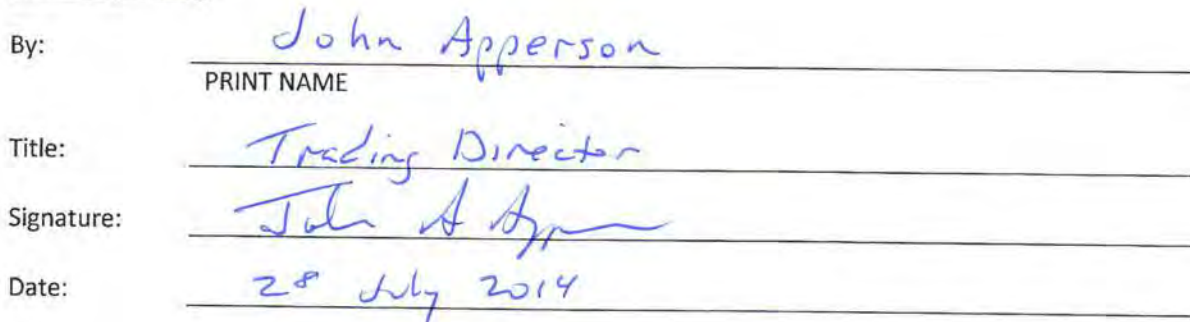 By: John Apperson
PRINT NAME
Title: Trading Director
Signature: John A App
Date: 28 July 2014